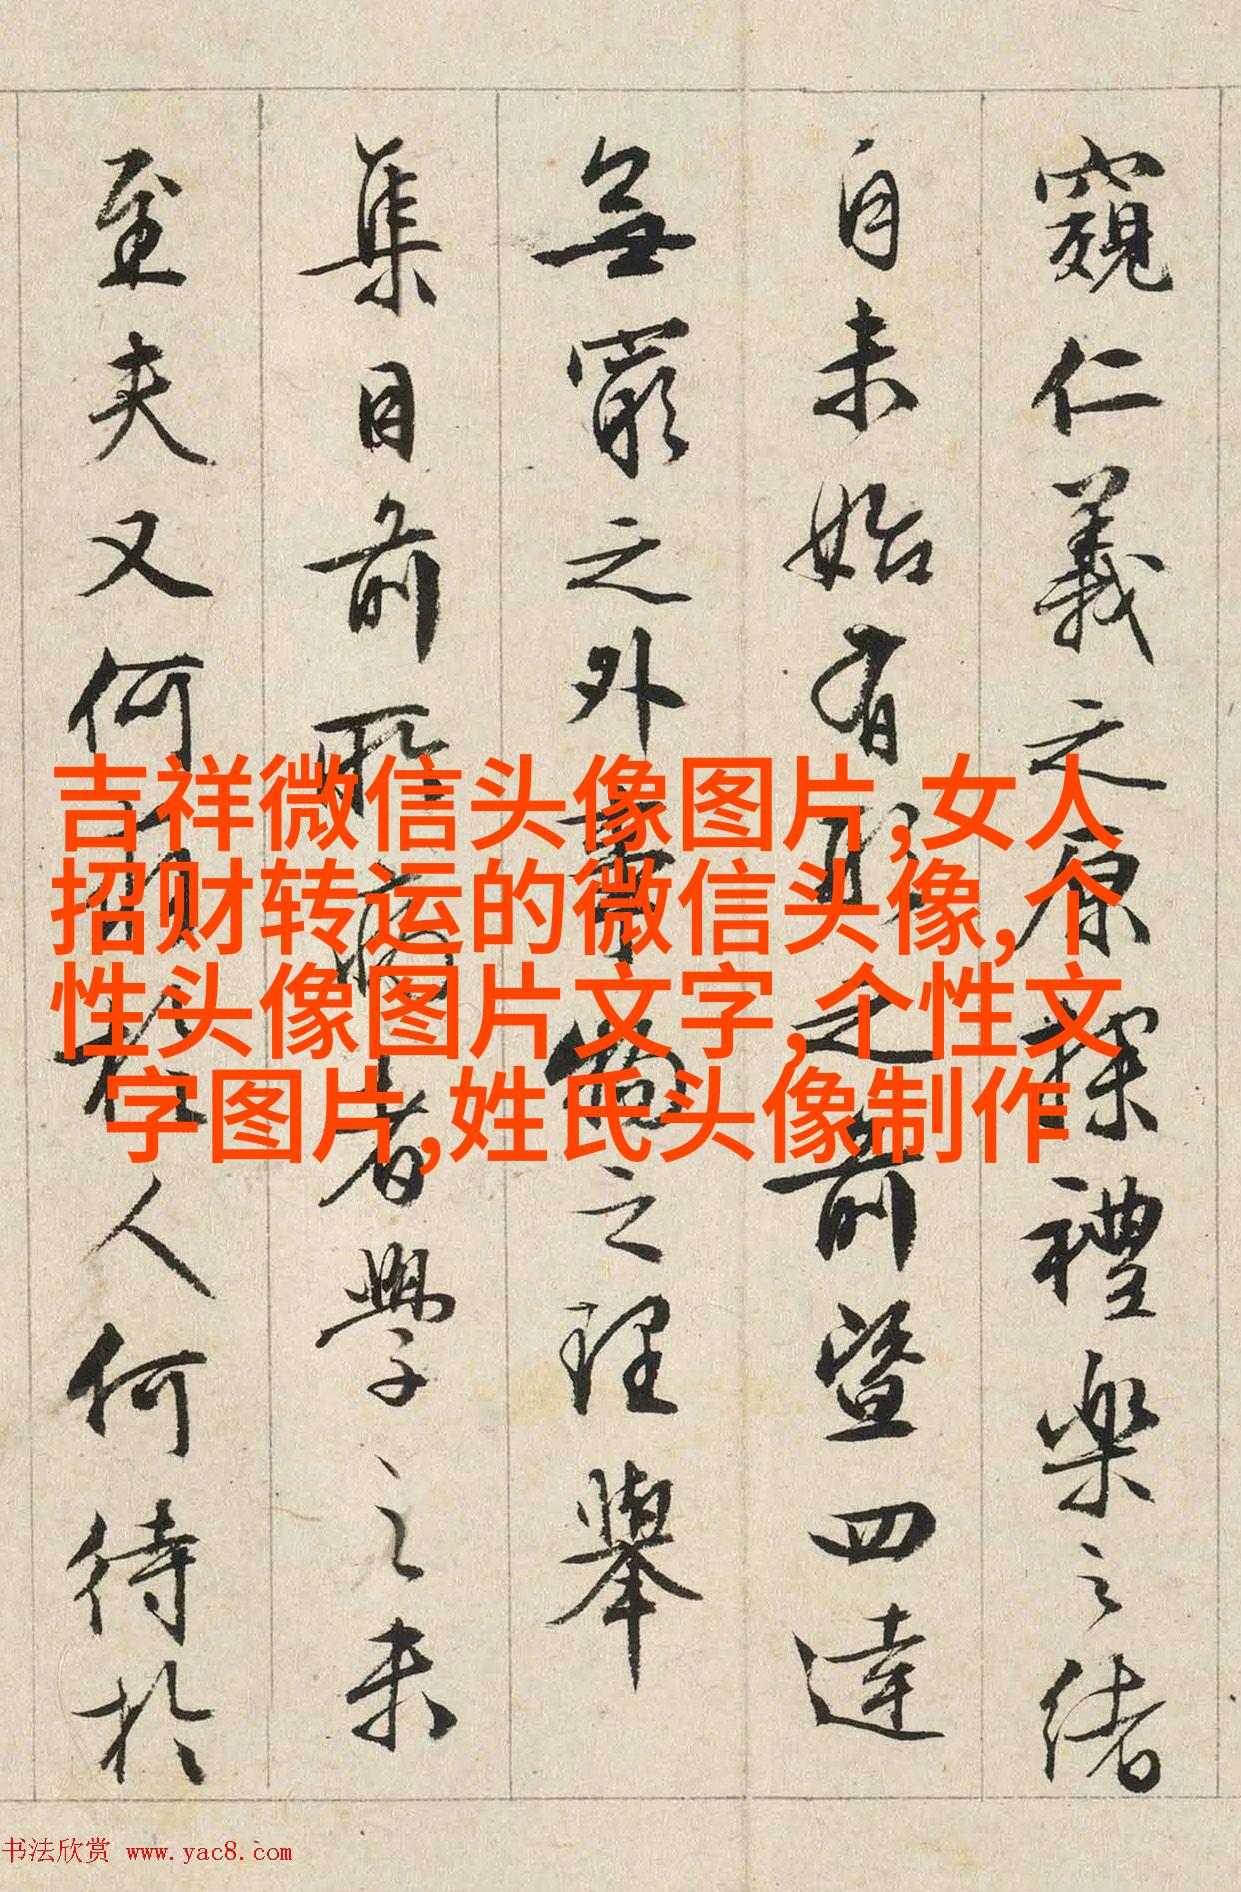 窺仁義之原探禮樂之緒
自未始有形之前暨四達
無窮之外事之理舉
集目前所病者學之未
至夫又何於人何待於
吉祥微信头像图片,女人
招财转运的微信头像,个
性头像图片文字,个性文
字图片,姓氏头像制作
书法欣赏 www.yac8.com